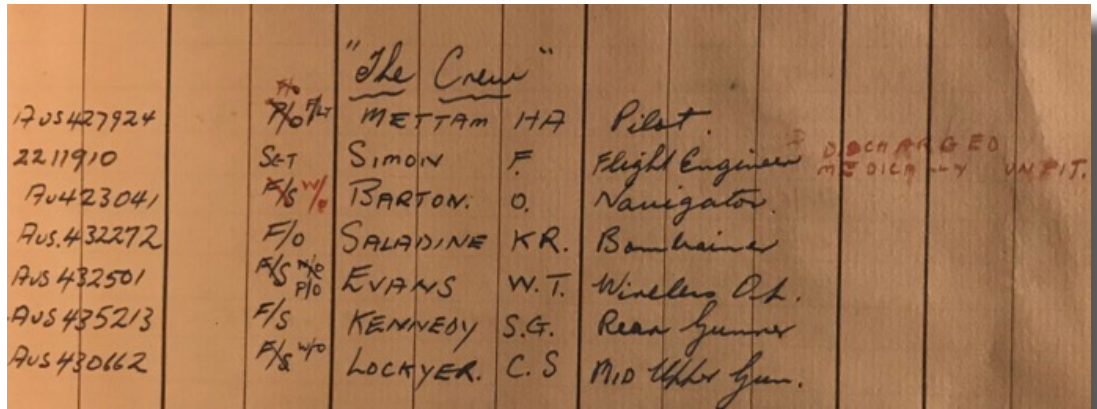 "The Crew"
F/O
AUS427924 P/O F/LT METTAM HA Pilot.
2211910 SGT SIMON F. Flight Engineer DISCHARGED
MEDICALLY UNFIT.
AU423041 F/S W/O BARTON. O. Navigator.
AUS.432272 F/O SALADINE KR. Bombaimer
AUS432501 F/S W/O P/O EVANS W.T. Wireless Op.
AUS435213 F/S KENNEDY S.G. Rear Gunner
AUS430662 F/S W/O LOCKYER. C.S MID Upper Gun.